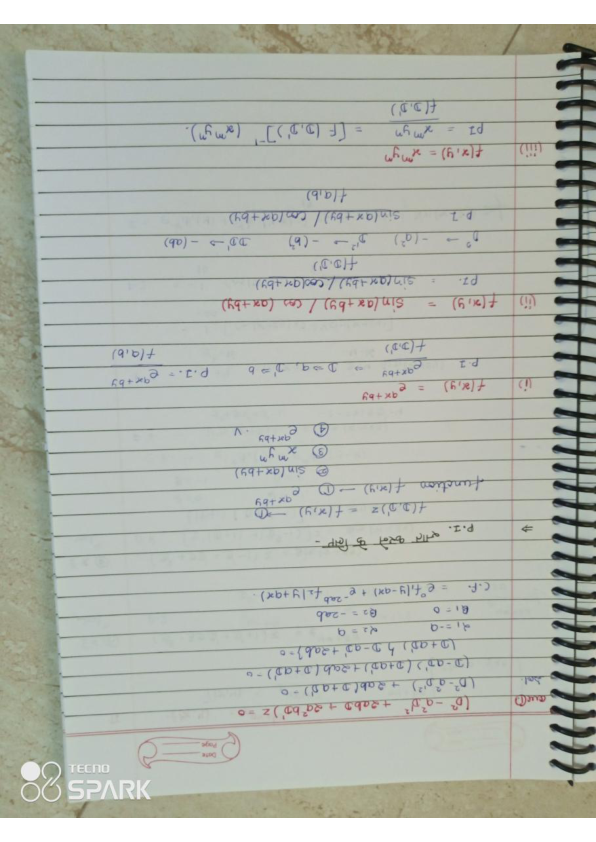 Date
Page
Que① (D² - a²D'² + 2abD + 2a²bD')z = 0
Sol. (D² - a²D'²) + 2ab(D+aD') = 0
(D-aD')(D+aD') + 2ab(D+aD') = 0
(D+aD') (D-aD'+2ab) = 0
α₁ = -a α₂ = a
β₁ = 0 β₂ = -2ab
C.F. = e⁰f₁(y-ax) + e^-2ab f₂(y+ax).
⇒ P.I. ज्ञात करने के लिए -
f(D,D')z = f(x,y) —①
function f(x,y) — ① e^ax+by
② sin(ax+by)
③ x^m y^n
④ e^ax+by . V
(i) f(x,y) = e^ax+by
P.I e^ax+by / f(D,D') ⇒ D=a, D'=b P.I. = e^ax+by / f(a,b)
(ii) f(x,y) = sin(ax+by) / cos(ax+by)
P.I. = sin(ax+by) / cos(ax+by)
f(D,D')
D² → -(a²) D'² → -(b²) DD' → -(ab)
P.I sin(ax+by) / cos(ax+by)
f(a,b)
(iii) f(x,y) = x^m y^n
PI = x^m y^n / f(D,D') = [F(D,D')]⁻¹ (x^m y^n).
TECNO
SPARK